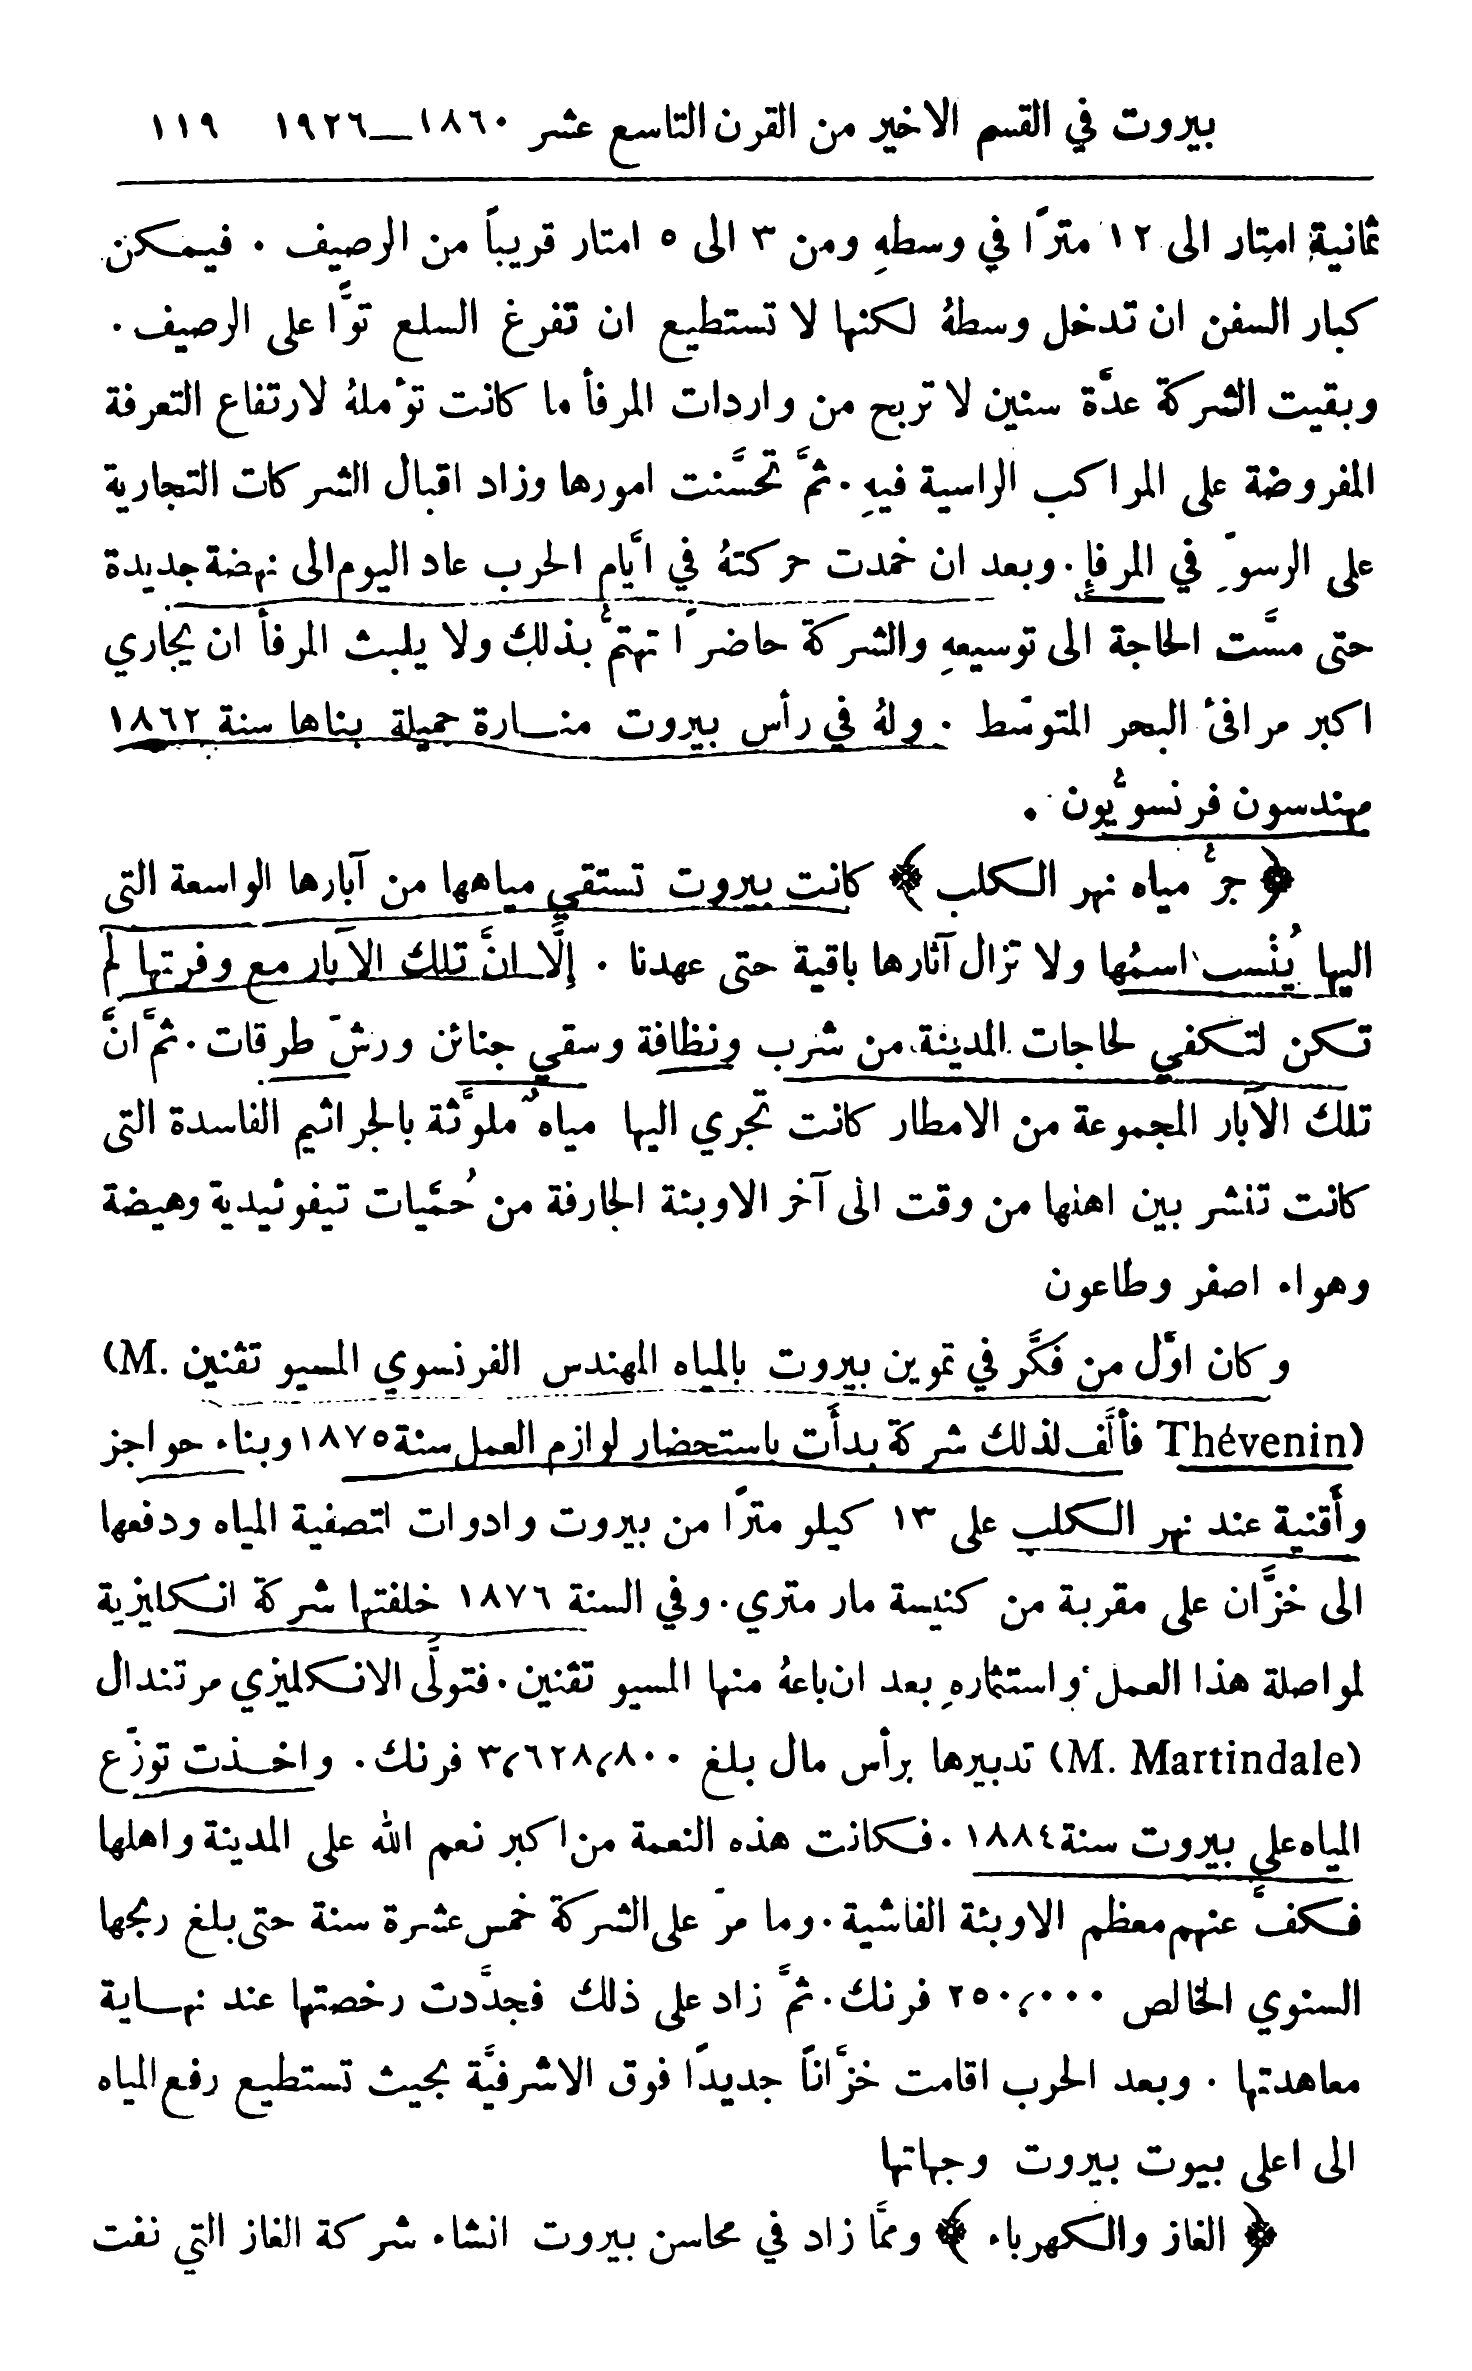 بيروت في القسم الاخير من القرن التاسع عشر ١٨٦٠—١٩٢٦ ١١٩
ثمانية امتار الى ١٢ مترًا في وسطهِ ومن ٣ الى ٥ امتار قريباً من الرصيف . فيمكن
كبار السفن ان تدخل وسطهُ لكنها لا تستطيع ان تفرغ السلع توًّا على الرصيف .
وبقيت الشركة عدَّة سنين لا تربح من واردات المرفأ ما كانت تؤملهُ لارتفاع التعرفة
المفروضة على المراكب الراسية فيهِ . ثمَّ تحسَّنت امورها وزاد اقبال الشركات التجارية
على الرسوّ في المرفإِ . وبعد ان خمدت حركتهُ في ايَّام الحرب عاد اليوم الى نهضة جديدة
حتى مسَّت الحاجة الى توسيعهِ والشركة حاضرًا تهتمُّ بذلك ولا يلبث المرفأ ان يجاري
اكبر مرافئ البحر المتوسّط . ولهُ في رأس بيروت منــارة جميلة بناها سنة ١٨٦٢
مهندسون فرنسويُّون .
﴿ جرُّ مياه نهر الكلب ﴾ كانت بيروت تستقي مياهها من آبارها الواسعة التي
اليها يُنْسب اسمُها ولا تزال آثارها باقية حتى عهدنا . إلَّا انَّ تلك الآبار مع وفرتها لم
تكن لتكفي لحاجات المدينة من شرب ونظافة وسقي جنائن ورشّ طرقات . ثمَّ انَّ
تلك الآبار المجموعة من الامطار كانت تجري اليها مياهٌ ملوَّثة بالجراثيم الفاسدة التي
كانت تنشر بين اهلها من وقت الى آخر الاوبئة الجارفة من حُمَّيات تيفوئيدية وهيضة
وهواء اصفر وطاعون
وكان اوَّل من فكَّر في تموين بيروت بالمياه المهندس الفرنسوي المسيو تڤنين (M.
Thévenin) فألَّف لذلك شركة بدأَت باستحضار لوازم العمل سنة ١٨٧٥ وبناء حواجز
وأَقنية عند نهر الكلب على ١٣ كيلو مترًا من بيروت وادوات لتصفية المياه ودفعها
الى خزَّان على مقربة من كنيسة مار متري . وفي السنة ١٨٧٦ خلفتها شركة انكليزية
لمواصلة هذا العمل واستثمارهِ بعد ان باعهُ منها المسيو تڤنين . فتولَّى الانكليزي مرتندال
(M. Martindale) تدبيرها برأس مال بلغ ٣،٦٢٨،٨٠٠ فرنك . واخــذت توزّع
المياه على بيروت سنة ١٨٨٤ . فكانت هذه النعمة من اكبر نعم الله على المدينة واهلها
فكفَّ عنهم معظم الاوبئة الفاشية . وما مرّ على الشركة خمس عشرة سنة حتى بلغ ربحها
السنوي الخالص ٢٥٠،٠٠٠ فرنك . ثمَّ زاد على ذلك فجدَّدت رخصتها عند نهــاية
معاهدتها . وبعد الحرب اقامت خزَّاناً جديدًا فوق الاشرفيَّة بحيث تستطيع رفع المياه
الى اعلى بيوت بيروت وجهاتها
﴿ الغاز والكهرباء ﴾ وممَّا زاد في محاسن بيروت انشاء شركة الغاز التي نفت